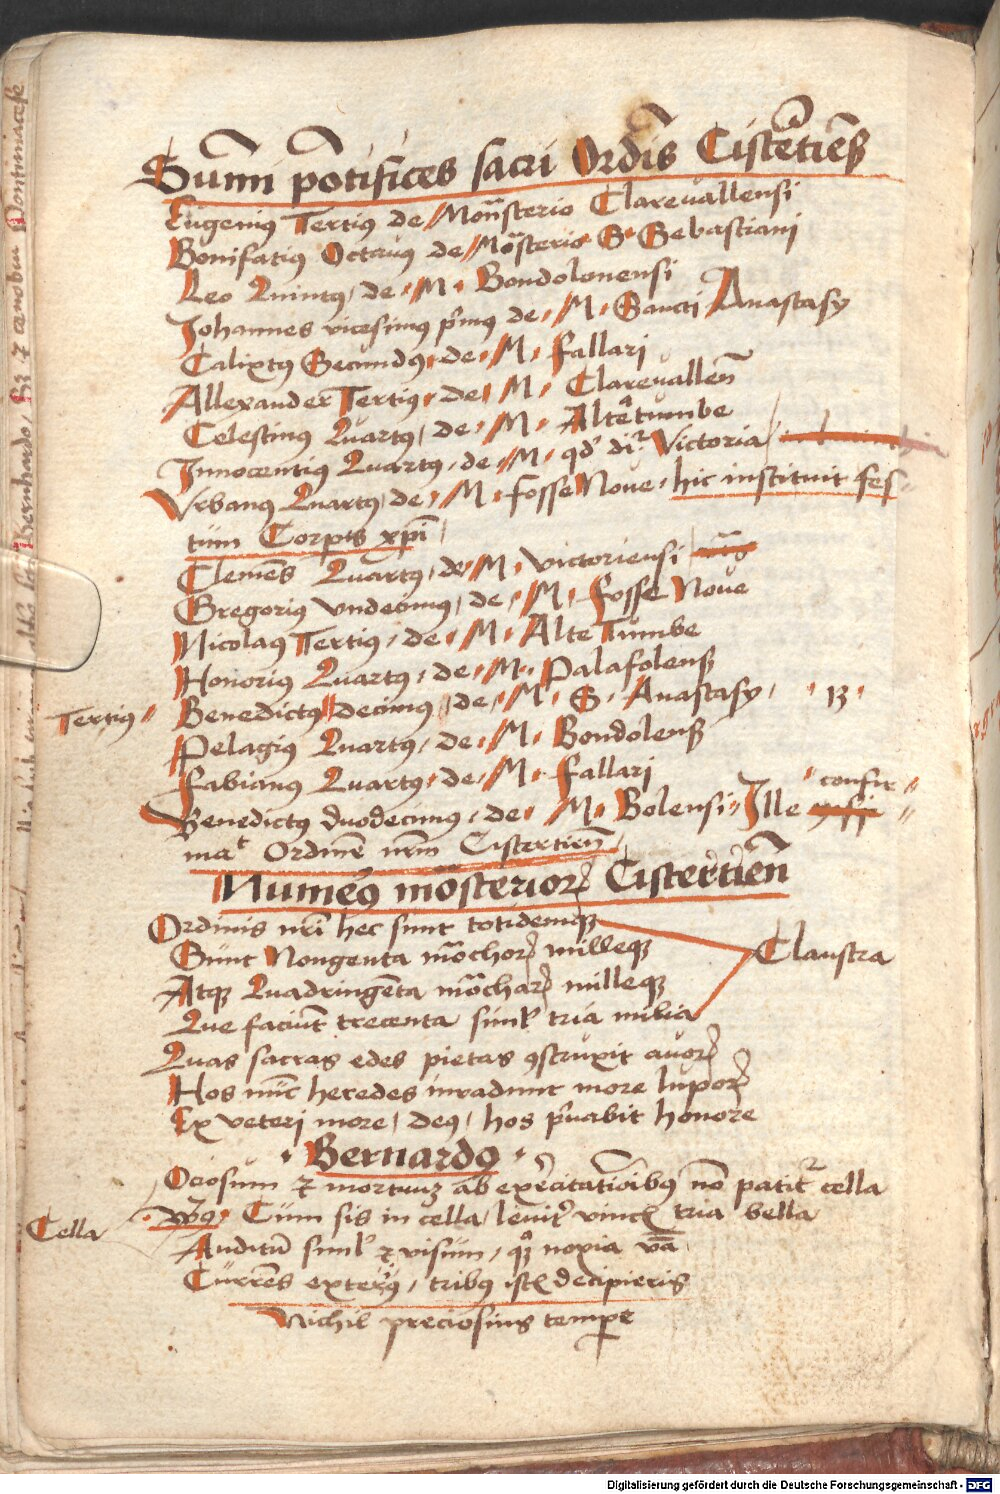 Sum̄i pōtifices sacri Ordīs Cistētiēß
Eugenius Tertius de Monāsterio Clarevallensi
Bonifatius Octavus de Mōasterio S. Sebastiani
Leo Quintus, de M. Bondolonensi
Johannes vicesimus p̄mus de M. Sancti Anastasy
Calixtus Secundus de M. Fallari
Allexander Tertius de M. Clarevalleñ
Celestinus Quartus, de M. Altētumbe
Innocentius Quartus, de M. qd' dr̄ Victoria
Vrbanus Quartus, de M. Fosse Nove. hic instituit fes-
tum Corpis xp̄i
Clemēs Quartus, de M. victoriensi
Gregorius vndecimus, de M. Fosse Nove
Nicolaus Tertius, de M. Alte Tumbe
Honorius Quartus, de M. Palafolenß
Tertius Benedictus decimus, de M. S. Anastasy, 13
Pelagius Quartus, de M. Bondolenß
Fabianus Quartus, de M. Fallari
Benedictus duodecimus, de M. Bolensi. Ille confir-
mat Ordinē nr̄m Cistertieñ
Numerus mōsterioꝝ Cistertieñ
Ordinis nr̄i hec sunt totidemqꝫ
Sunt Nongenta mōachoꝝ milleqꝫ Claustra
Atqꝫ Quadringēta mōachaꝝ milleqꝫ
Que faciūt trecenta siml' tria milia
Quas sacras edes pietas ꝯstruxit avoꝝ
Hos nūc heredes invadunt more lupoꝝ
Ex veteri more, deus, hos p̄vabit honore
Bernardus
Ociosum et mortuuꝫ ab exercitatiōibus nō patitr cella
Cella Cum sis in cella, leviter vincis tria bella
Auditū siml' et visum, noxia
Currēs exterius, tribus istis decipieris
Nichil preciosius tempe